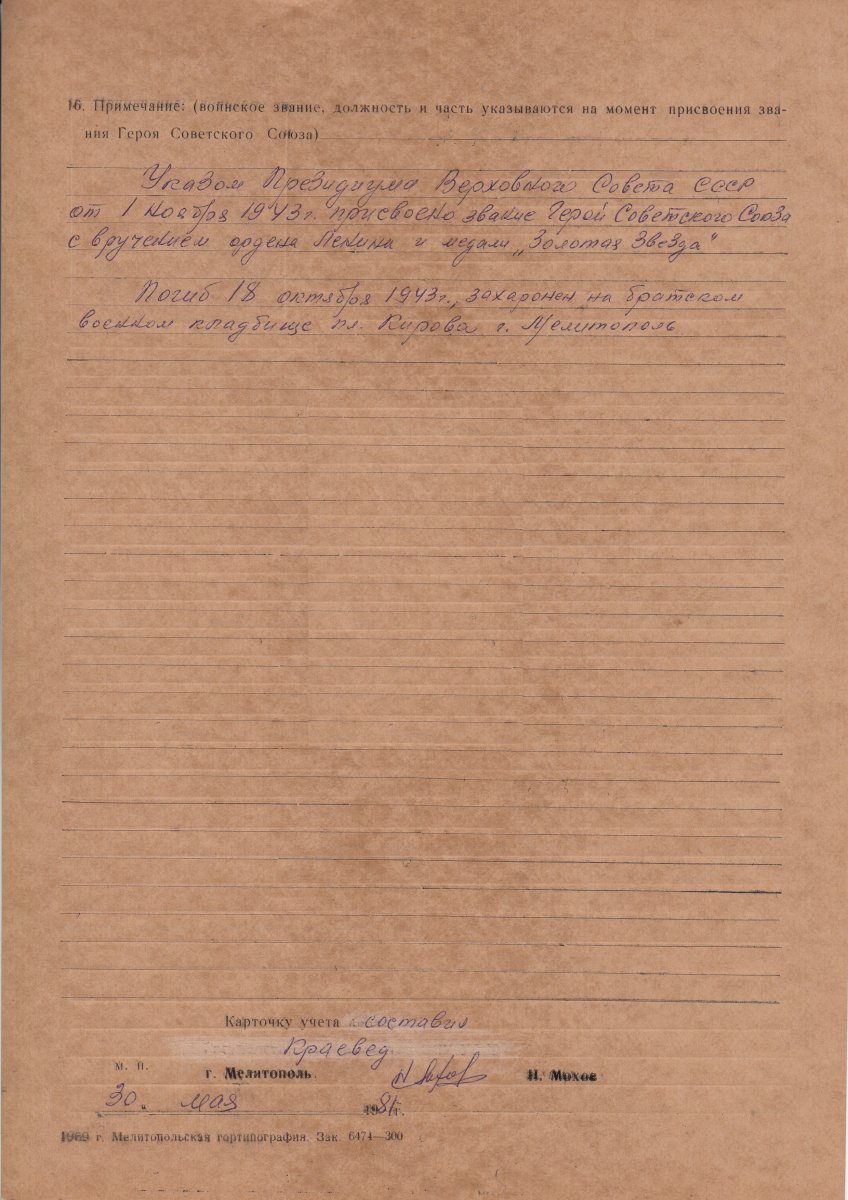 16. Примечание: (воинское звание, должность и часть указываются на момент присвоения зва-
ния Героя Советского Союза)
Указом Президиума Верховного Совета СССР
от 1 ноября 1943 г. присвоено звание Герой Советского Союза
с вручением ордена Ленина и медали „Золотая Звезда"
Погиб 18 октября 1943 г., захаронен на братском
военном кладбище пл. Кирова г. Мелитополь
Карточку учета составил
Краевед
М. П. г. Мелитополь. Н. Мохов
30. мая 1981г.
1969 г. Мелитопольская гортипография. Зак 6474—300